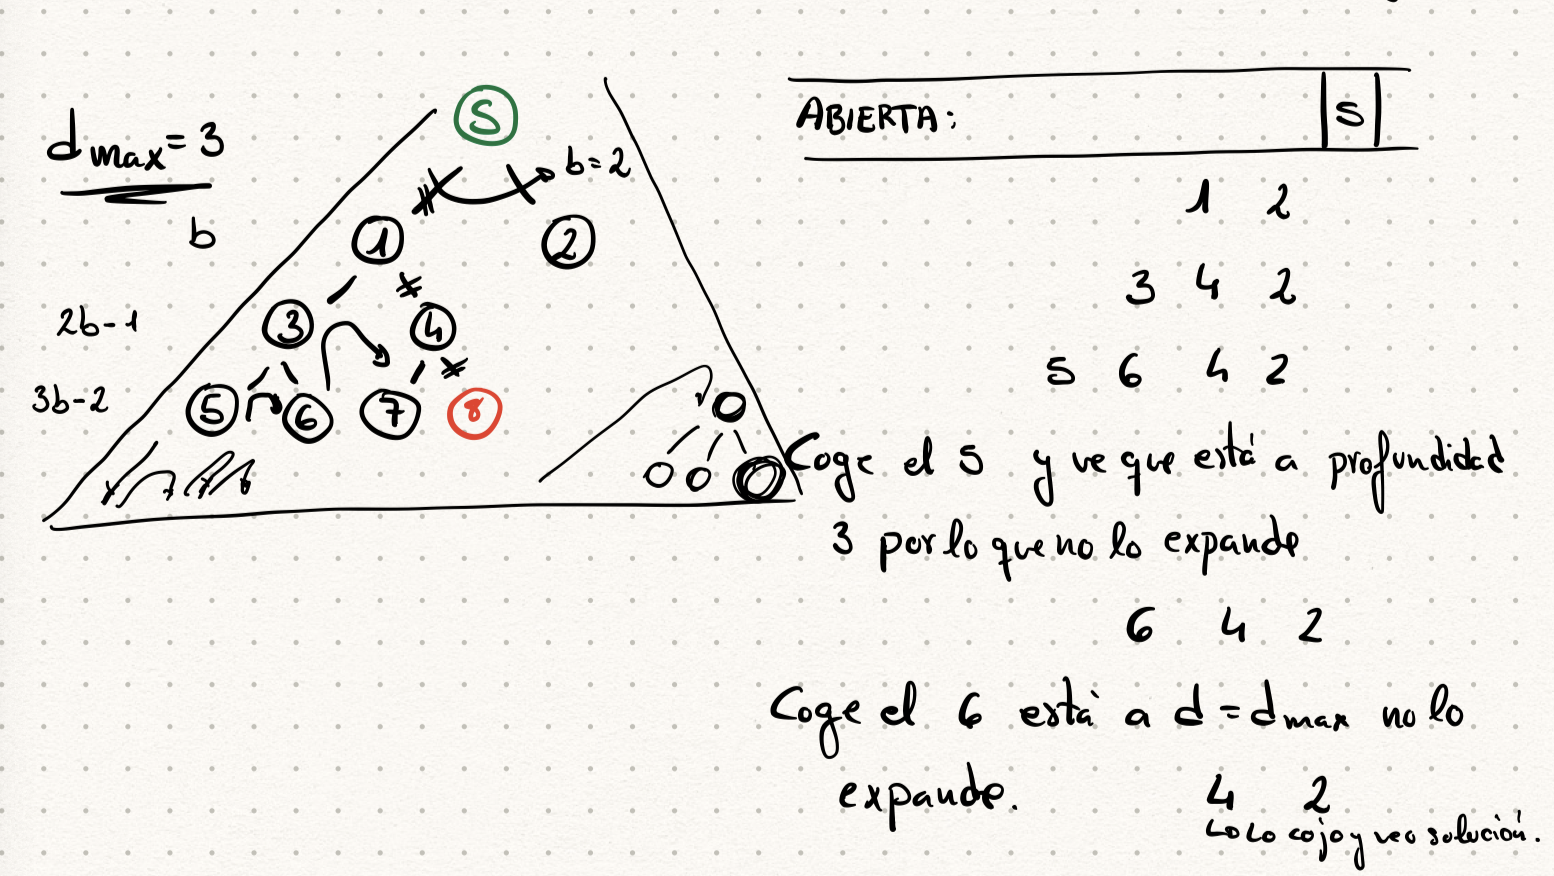 dmax = 3
b
2b-1
3b-2
S
b=2
1 2
3 4
5 6 7 8
ABIERTA: S
1 2
3 4 2
5 6 4 2
Coge el 5 y ve que está a profundidad
3 por lo que no lo expande
6 4 2
Coge el 6 está a d = dmax no lo
expande.
4 2
Lo cojo y veo solución.